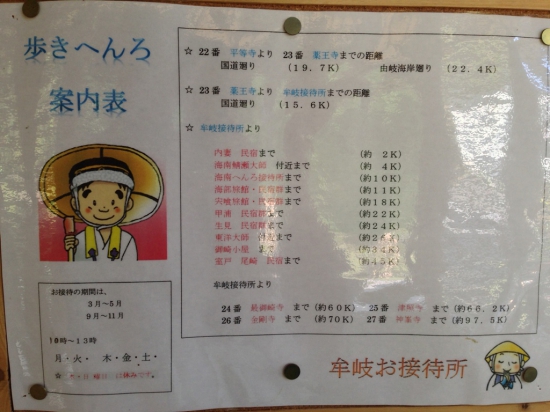 歩きへんろ
案内表
☆ 22番 平等寺より 23番 薬王寺までの距離
国道廻り (19.7K) 由岐海岸廻り (22.4K)
☆ 23番 薬王寺より 牟岐接待所までの距離
国道廻り (15.6K)
☆ 牟岐接待所より
内妻 民宿まで (約 2K)
海南鯖瀬大師 付近まで (約 4K)
海南へんろ接待所まで (約10K)
海部旅館・民宿群まで (約11K)
宍喰旅館・民宿群まで (約18K)
甲浦 民宿群まで (約22K)
生見 民宿群まで (約24K)
東洋大師 付近まで
御崎小屋 まで (約34K)
室戸 尾崎 民宿まで (約45K)
牟岐接待所より
24番 最御崎寺 まで (約60K) 25番 津照寺 まで (約66.2K)
26番 金剛寺 まで (約70K) 27番 神峯寺 まで (約97.5K)
お接待の期間は、
3月~5月
9月~11月
10時~13時
月・火・ 木・金・土・
☆ 日 曜日 休みです。
牟岐お接待所